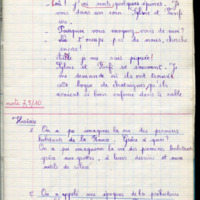 - Lou! j'ai senti quelques épines. Je
vais dans un coin. Sylvie et Fanfi
- Pourquoi vous moquez-vous de moi?
- Ne t'occupe pas de nous, cherche
encore!
- Aïe je me suis piquée!
Sylvie et Fanfi se sauvèrent. Je
me demande où ils ont trouvé
cette bogue de châtaignes, ils
avaient si bien enfoui dans le sable
note 7,5/10
Histoire
On a pu imaginer la vie des premiers
habitants de la France. Grâce à quoi?
On a pu imaginer la vie des premiers habitants
grâce aux grottes, à leurs dessins et aux
outils de silex.
On a appelé une époque de la préhistoire